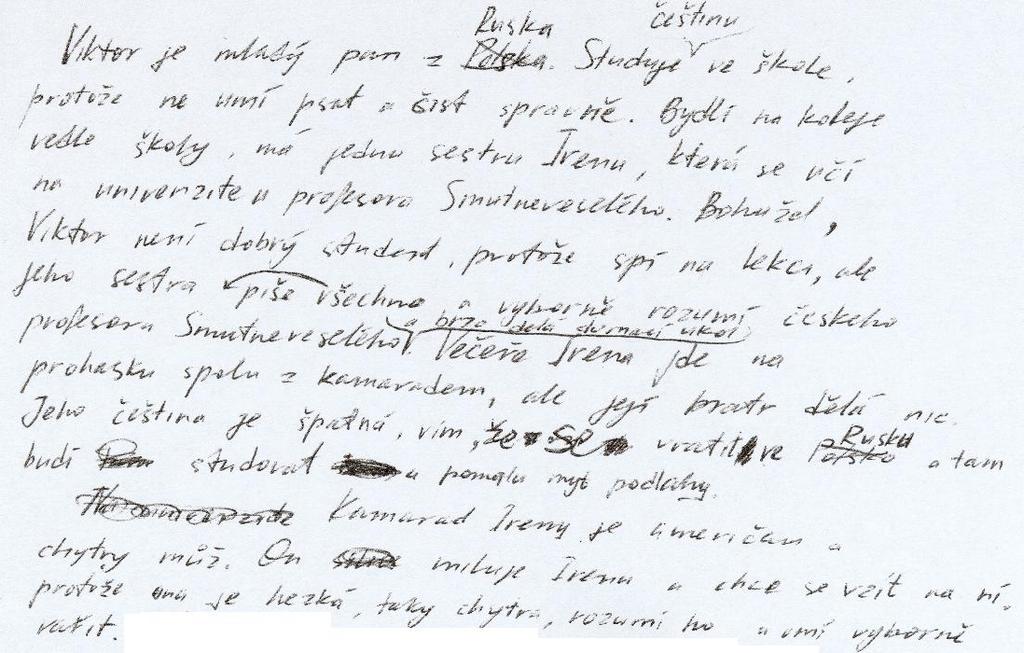 Ruska češtinu
Viktor je mladý pan z Polska. Studuje ve škole,
protože ne umí psat a čist spravně. Bydlí na koleje
vedle školy, má jednu sestru Irenu, která se učí
na univerzite u profesora Smutneveselého. Bohužel,
Viktor není dobrý student, protože spí na lekci, ale
jeho sestra piše všechno a vyborně rozumí českeho
profesora Smutneveselého. a brzo dělá domací ukol Večeře Irena jde na
prohasku spolu z kamaradem, ale její bratr dělá nic.
Jeho čeština je špatná, vim, že se vratil ve Polsko Rusku a tam
budí studovat a pomalu myt podlahy.
Kamarad Ireny je američan a
chytry můž. On miluje Irenu a chce se vzít na ní,
protože ona je hezká, taky chytra, rozumí ho a umí vyborně
vařit.